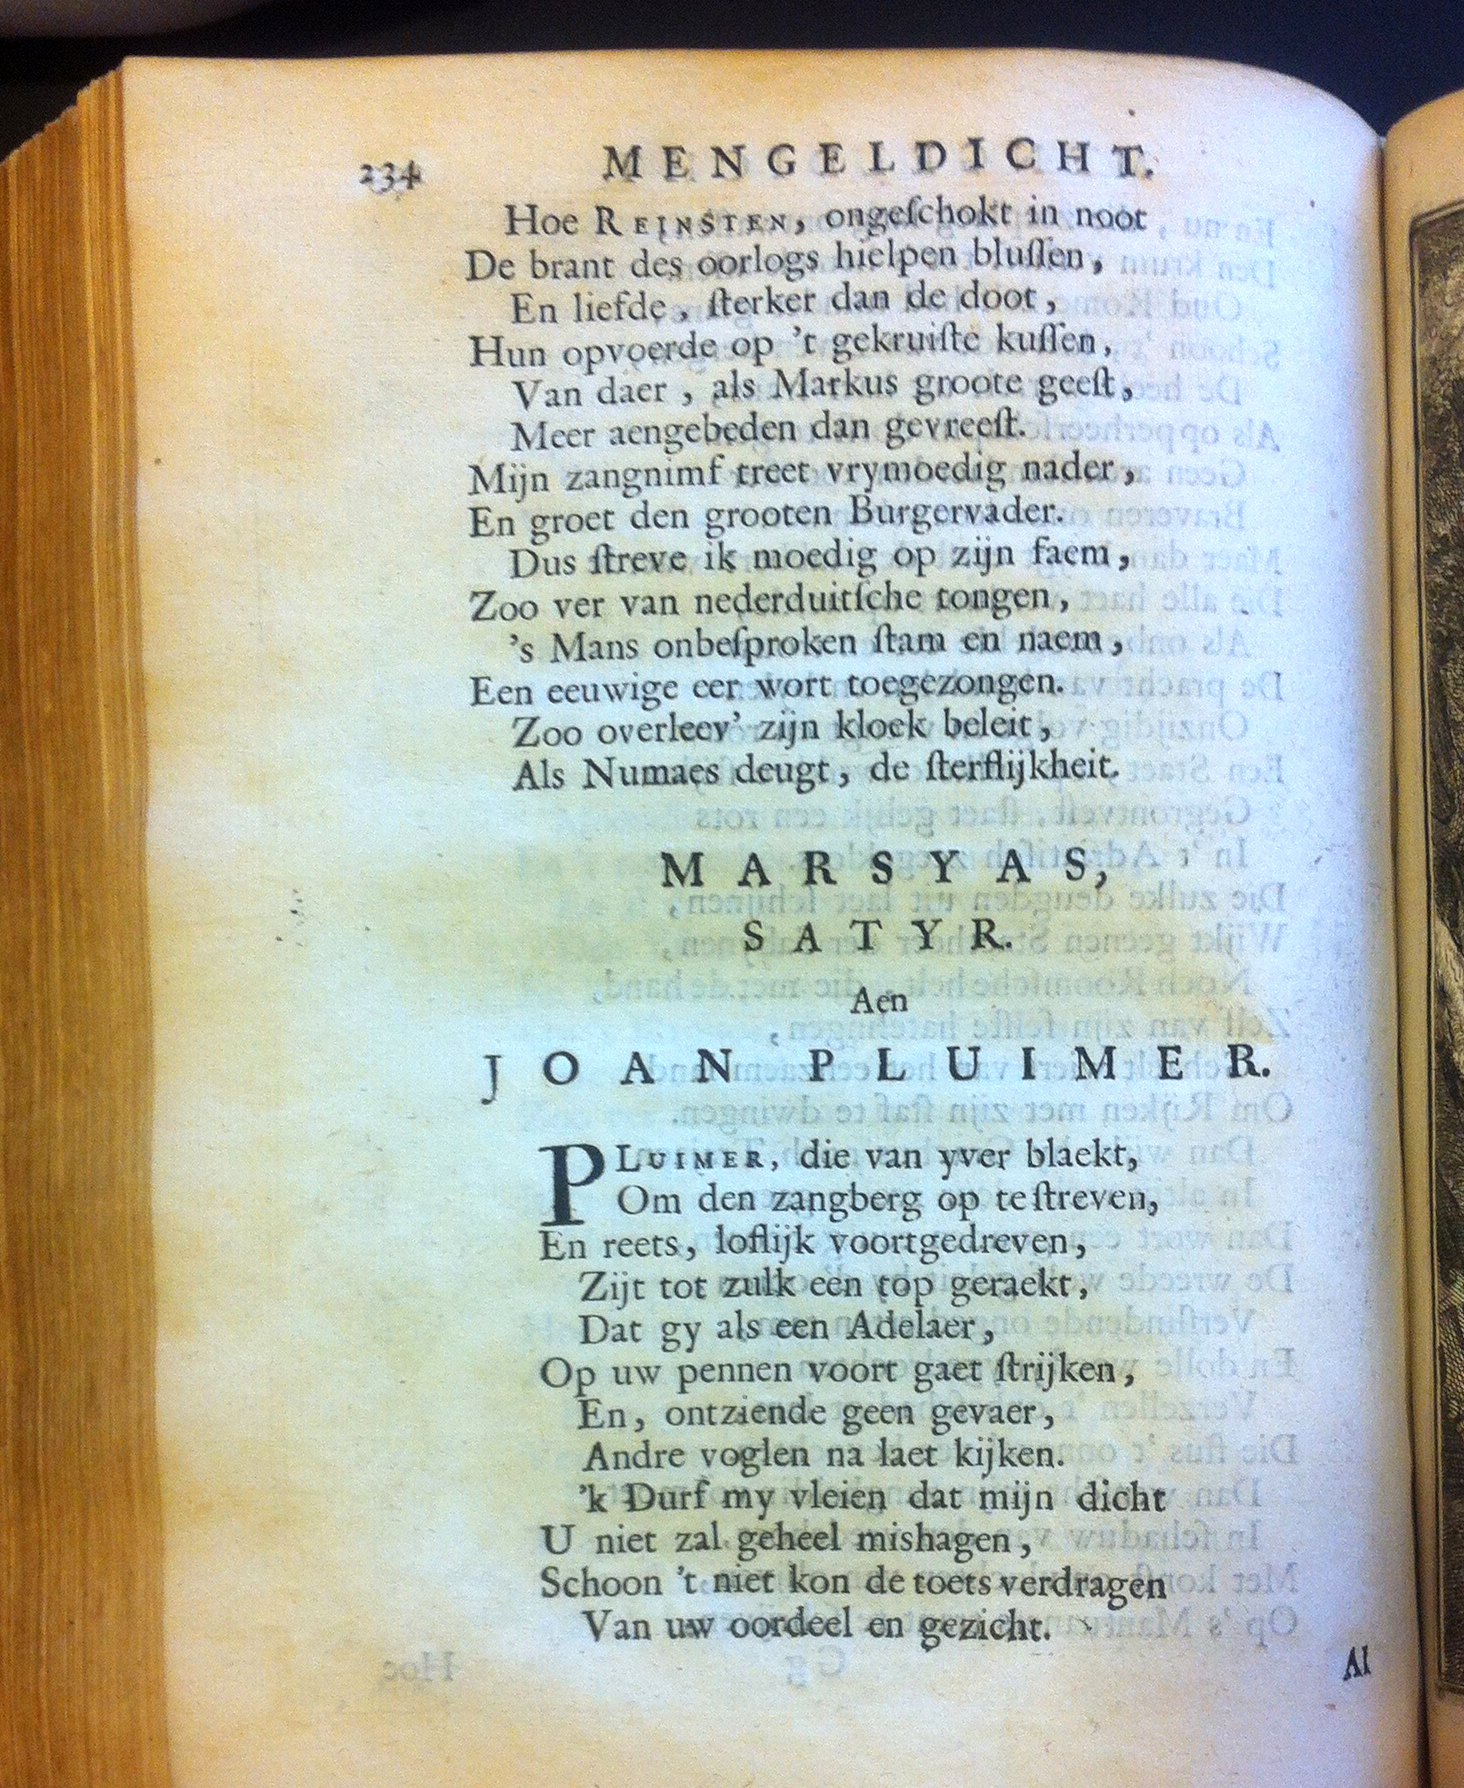 234 MENGELDICHT.
Hoe REINSTEN, ongeſchokt in noot
De brant des oorlogs hielpen bluſſen,
En liefde, ſterker dan de doot,
Hun opvoerde op 't gekruiſte kuſſen,
Van daer, als Markus groote geeſt,
Meer aengebeden dan gevreeſt.
Mijn zangnimf treet vrymoedig nader,
En groet den grooten Burgervader.
Dus ſtreve ik moedig op zijn faem,
Zoo ver van nederduitſche tongen,
's Mans onbeſproken ſtam en naem,
Een eeuwige eer wort toegezongen.
Zoo overleev' zijn kloek beleit,
Als Numaes deugt, de ſterflijkheit.
MARSYAS,
SATYR.
Aen
JOAN PLUIMER.
PLUIMER, die van yver blaekt,
Om den zangberg op te ſtreven,
En reets, loflijk voortgedreven,
Zijt tot zulk een top geraekt,
Dat gy als een Adelaer,
Op uw pennen voort gaet ſtrijken,
En, ontziende geen gevaer,
Andre voglen na laet kijken.
'k Durf my vleien dat mijn dicht
U niet zal geheel mishagen,
Schoon 't niet kon de toets verdragen
Van uw oordeel en gezicht.
Al